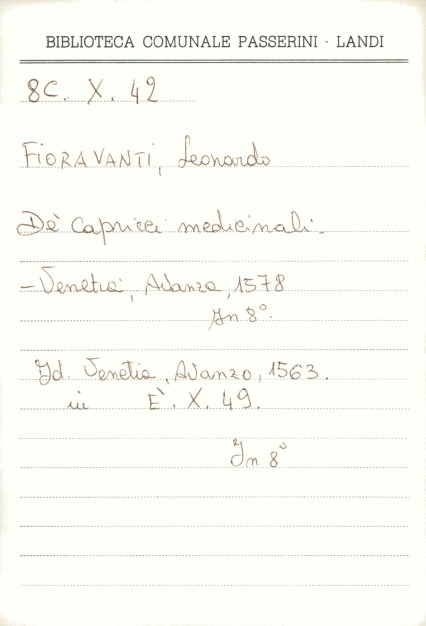 BIBLIOTECA COMUNALE PASSERINI - LANDI
8C. X. 42
FIORAVANTI, Leonardo
De' Capricci medicinali.
- Venetia, Avanzo, 1578
In 8°.
Id. Venetia, Avanzo, 1563.
in È. X. 49.
In 8°